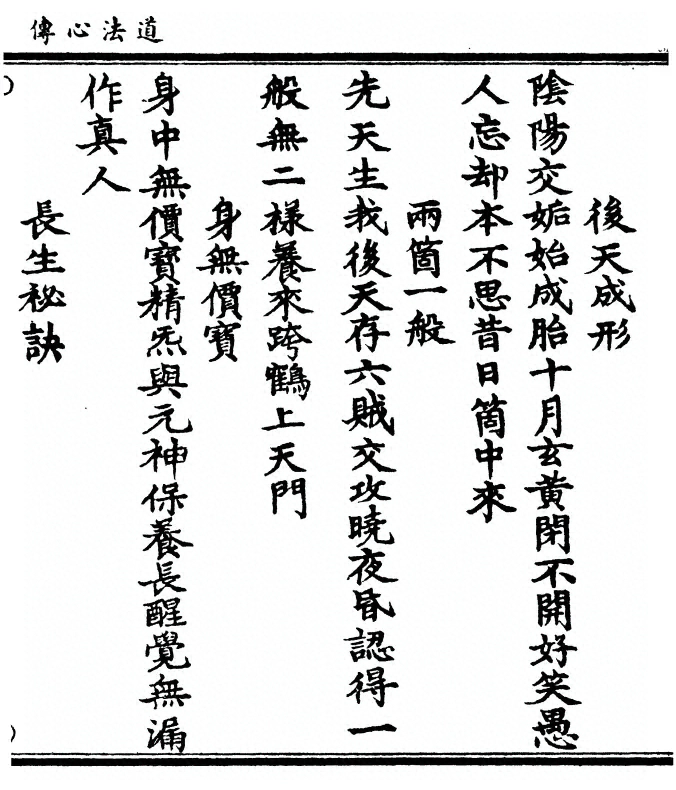 道法心傳
後天成形
陰陽交姤始成胎十月玄黄閉不開好笑愚
人忘却本不思昔日箇中來
兩箇一般
先天生我後天存六賊交攻曉夜昏認得一
般無二樣養來跨鶴上天門
身無價寶
身中無價寶精炁與元神保養長醒覺無漏
作真人
長生秘訣